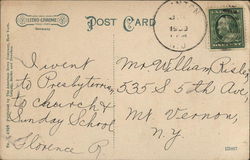 ELECTRO-CHROME
Germany
POST CARD
1909
N.J.
I went
to Presbyterian
to church &
Sunday School
Florence R
Mr. William Risley
535 S 5th Ave,
Mt. Vernon,
N.Y.